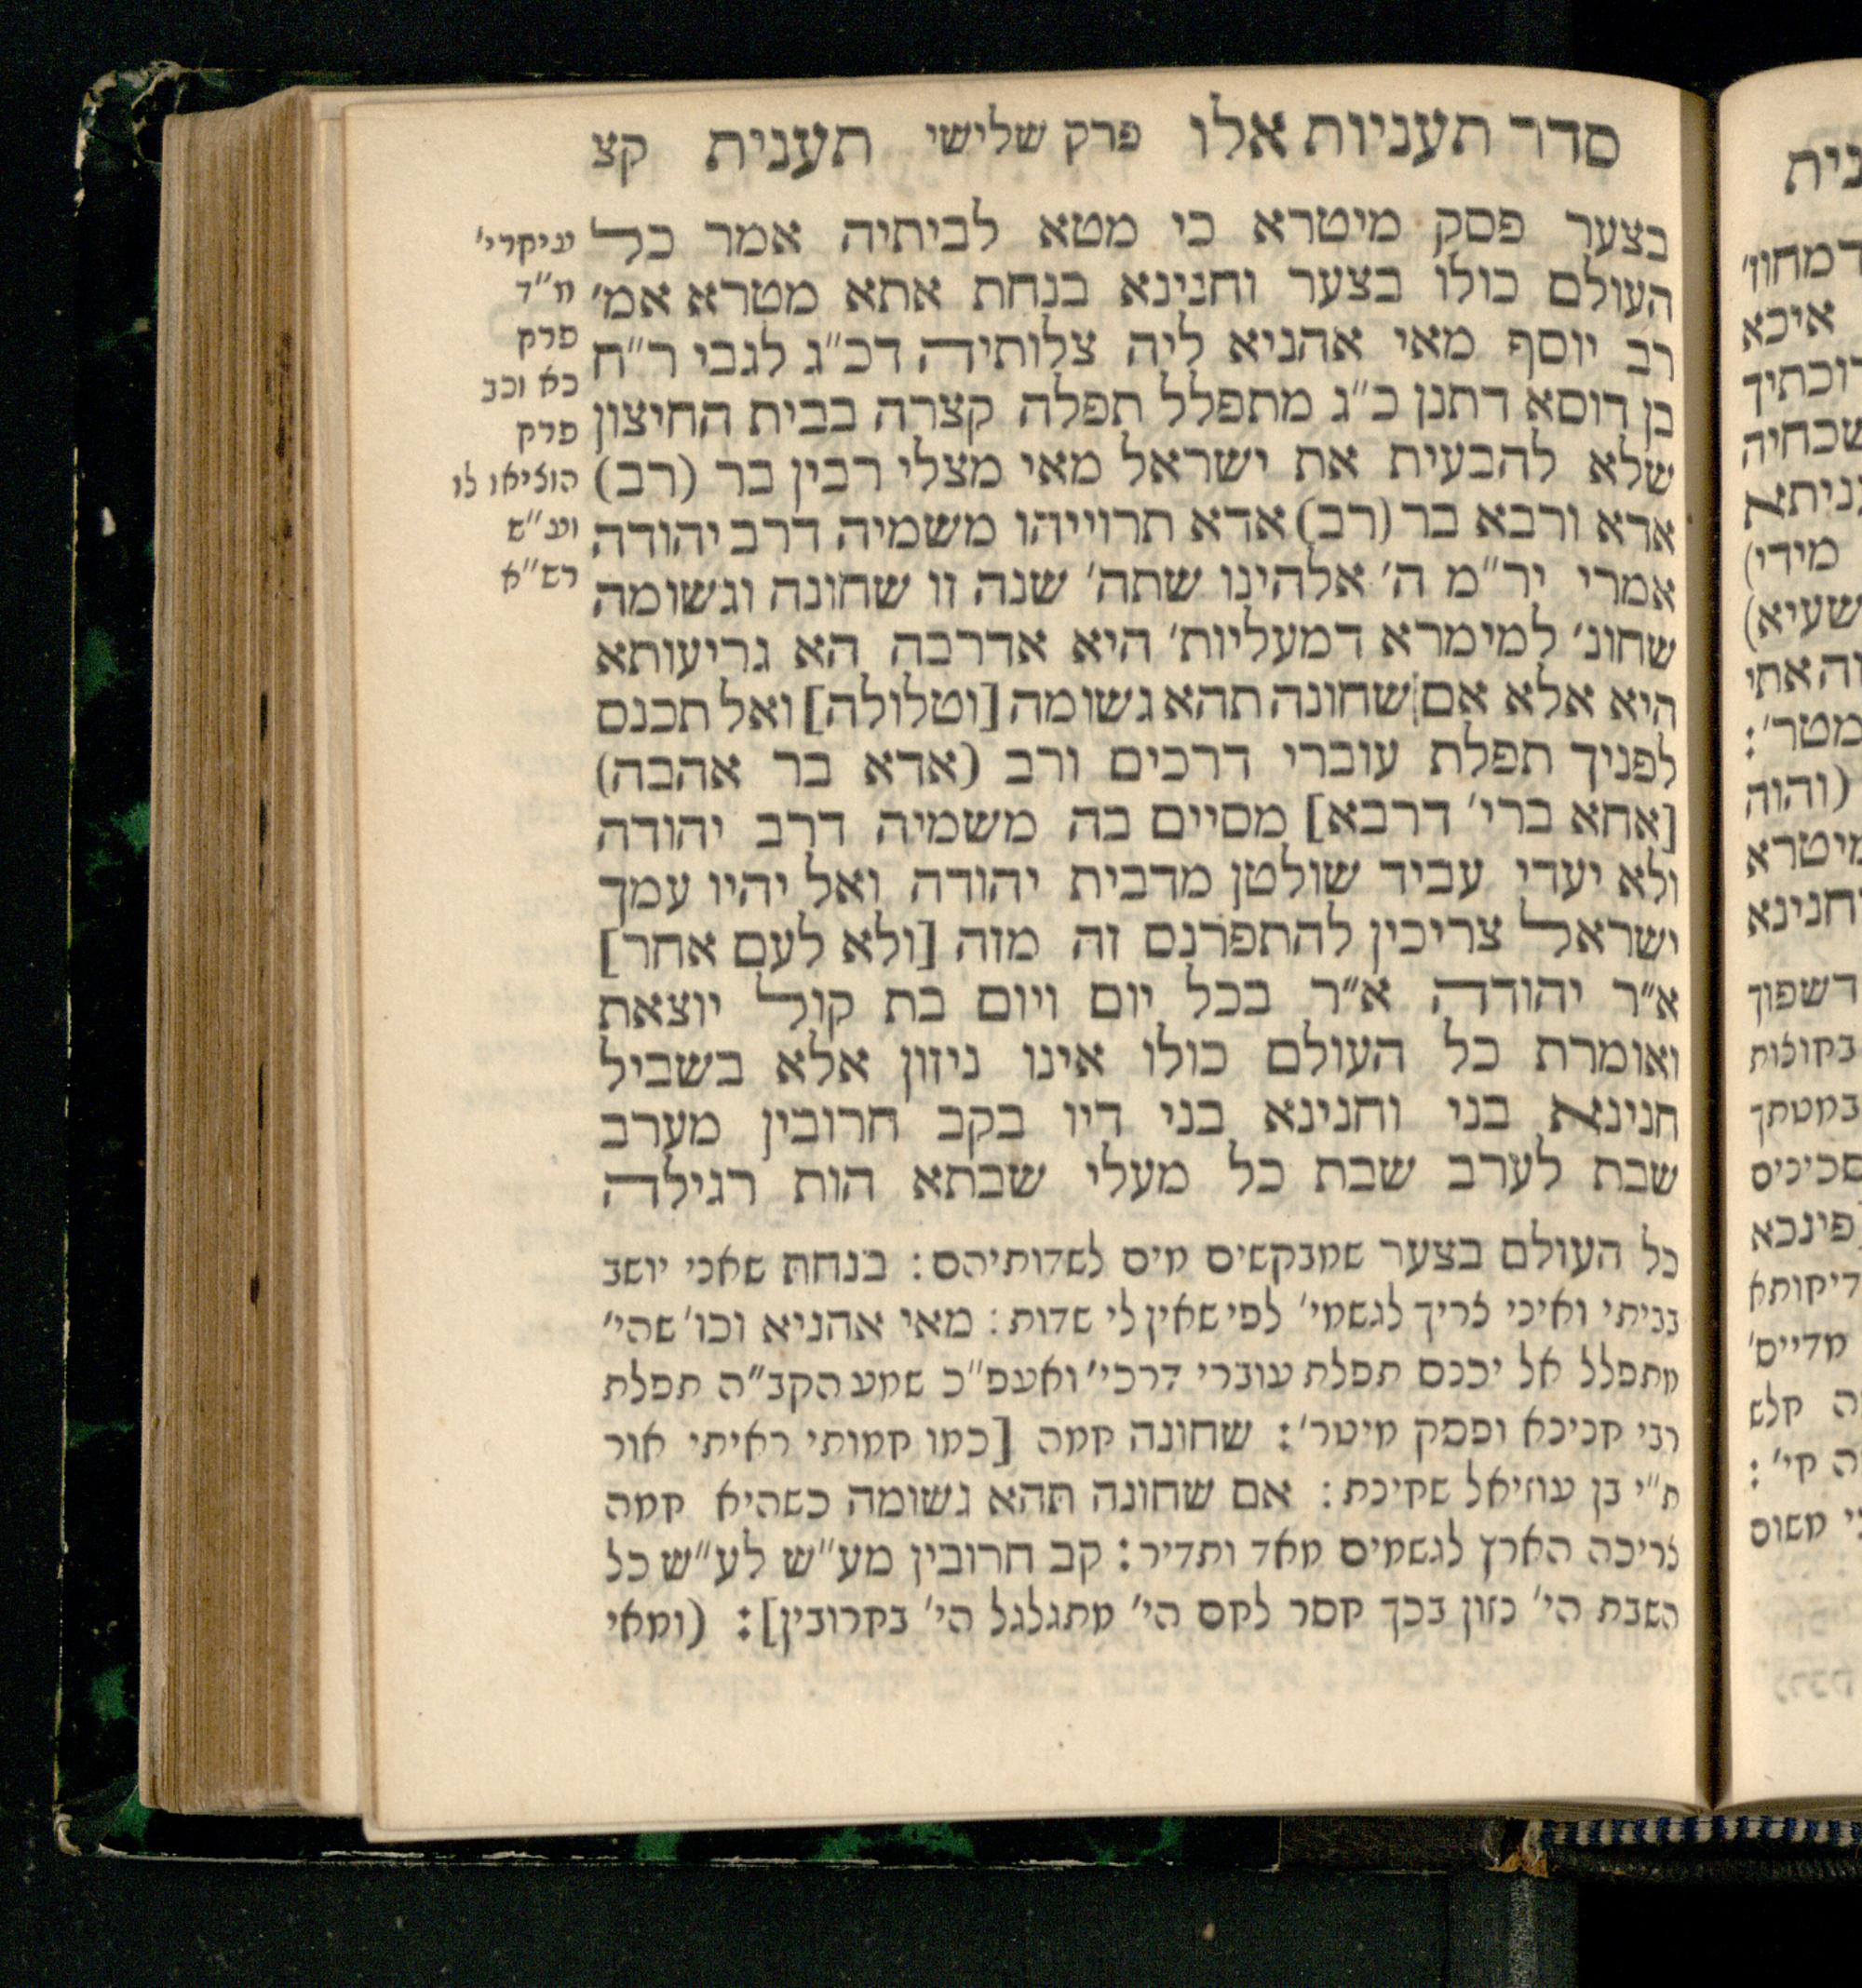 סדר תעניות אלו פרק שלישי תענית קצ
בצער פסק מיטרא כי מטא לביתיה אמר כל
העולם כולו בצער וחנינא בנחת אתא מטרא אמ'
רב יוסף מאי אהניא ליה צלותיה דכ"ג לגבי ר"ח
בן דוסא דתנן כ"ג מתפלל תפלה קצרה בבית החיצון
שלא להבעית את ישראל מאי מצלי רבין בר (רב)
אדא ורבא בר (רב) אדא תרוייהו משמיה דרב יהודה
אמרי יר"מ ה' אלהינו שתה' שנה זו שחונה וגשומה
שחונ' למימרא דמעליות' היא אדרבה הא גריעותא
היא אלא אם שחונה תהא גשומה [וטלולה] ואל תכנס
לפניך תפלת עוברי דרכים ורב (אדא בר אהבה)
[אחא ברי' דרבא] מסיים בה משמיה דרב יהודה
ולא יעדי עביד שולטן מדבית יהודה ואל יהיו עמך
ישראל צריכין להתפרנס זה מזה [ולא לעם אחר]
א"ר יהודה א"ר בכל יום ויום בת קול יוצאת
ואומרת כל העולם כולו אינו ניזון אלא בשביל
חנינא בני וחנינא בני דיו בקב חרובין מערב
שבת לערב שבת כל מעלי שבתא הות רגילה
כל העולם בצער שמבקשים מים לשדותיהם: בנחת שאני יושב
בביתי ואיני צריך לגשמי' לפי שאין לי שדות: מאי אהניא וכו' שהי'
מתפלל אל יכנס תפלת עוברי דרכי' ואעפ"כ שמע הקב"ה תפלת
רבי חנינא ופסק מיטר': שחונה חמה [כמו חמותי ראיתי אור
ת"י בן עוזיאל שחינת: אם שחונה תהא גשומה כשהיא חמה
צריכה הארץ לגשמים מאד ותדיר: קב חרובין מע"ש לע"ש כל
השבת הי' נזון בכך חסר לחם הי' מתגלגל הי' בחרובין]: (ומאי
עיקרי'
מ"ד
פרק
כא וכב
פרק
הוציאו לו
ועי"ש
רש"א
נית
דמחוז'
איכא
דוכתיך
שכחיה
ניתא
מידי)
שעיא)
וה אתי
מטר':
(והוה
מיטרא
וחנינא
דשפוך
בקוצות
במטתך
סכינים
פינכא
דיקותא
מדיים'
ה קלש
ה קי':
י משום